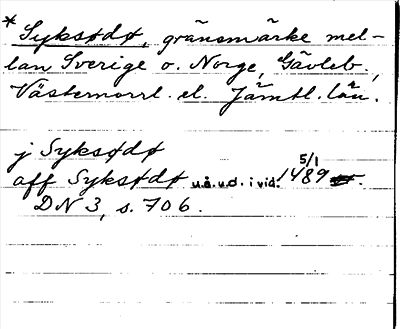 * Syksødø, gränsmärke mel-
lan Sverige o. Norge, Gävleb.,
Västernorrl. el. Jämtl. län.
j Syksødø
aff Syksødø u.å.u.d. i vid. 5/1 1489.
DN 3, s. 706.